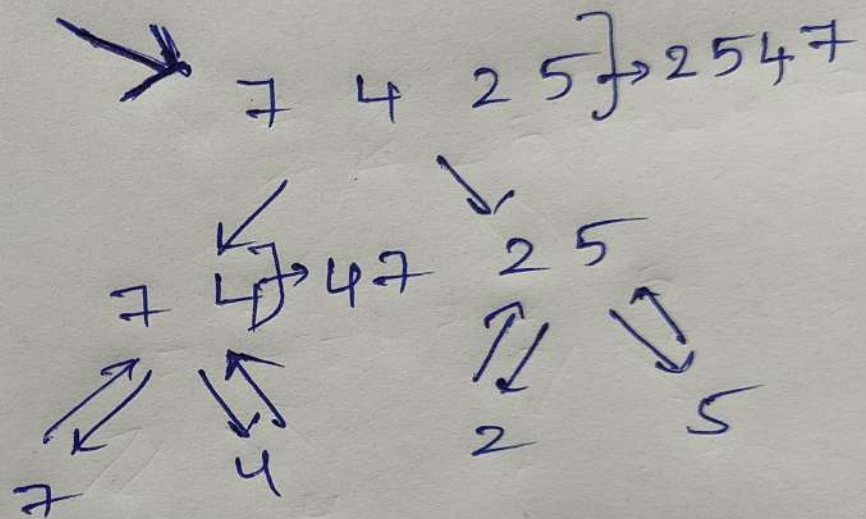 7 4 2 5 } → 2 5 4 7
7 4 } → 4 7 2 5
7 4 2 5